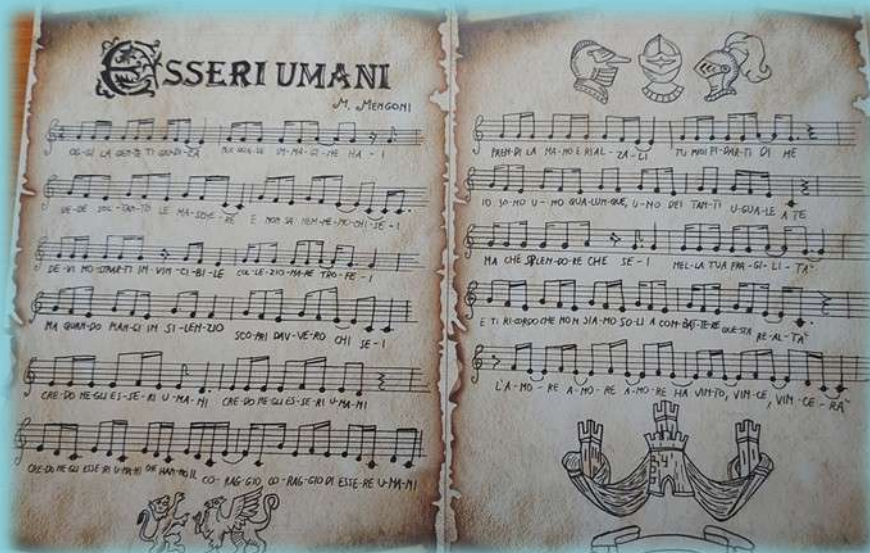 ESSERI UMANI
M. MENGONI
OG-GI LA GEN-TE TI GIU-DI-CA PER QUA-LE IM-MA-GI-NE HA-I
VE-DE SOL-TAN-TO LE MA-SCHE-RE E NON SA NEM-ME-NO CHI SE-I
DE-VI MO-STRAR-TI IN-VIN-CI-BI-LE COL-LE-ZIO-NA-RE TRO-FE-I
MA QUAN-DO PIAN-GI IN SI-LEN-ZIO SCO-PRI DAV-VE-RO CHI SE-I
CRE-DO NE-GLI ES-SE-RI U-MA-NI CRE-DO NE-GLI ES-SE-RI U-MA-NI
CRE-DO NE-GLI ESSE-RI U-MA-NI CHE HAN-NO IL CO-RAG-GIO CO-RAG-GIO DI ESSE-RE U-MA-NI
PREN-DI LA MA-NO E RIAL-ZA-TI TU PUOI FI-DAR-TI DI ME
IO SO-NO U-NO QUA-LUN-QUE, U-NO DEI TAN-TI U-GUA-LE A TE
MA CHE SPLEN-DO-RE CHE SE-I NEL-LA TUA FRA-GI-LI-TA'
E TI RI-CORDO CHE NON SIA-MO SO-LI A COM-BAT-TE-RE QUE-STA RE-AL-TA'
L'A-MO-RE A-MO-RE A-MO-RE HA VIN-TO, VIN-CE, VIN-CE-RA'